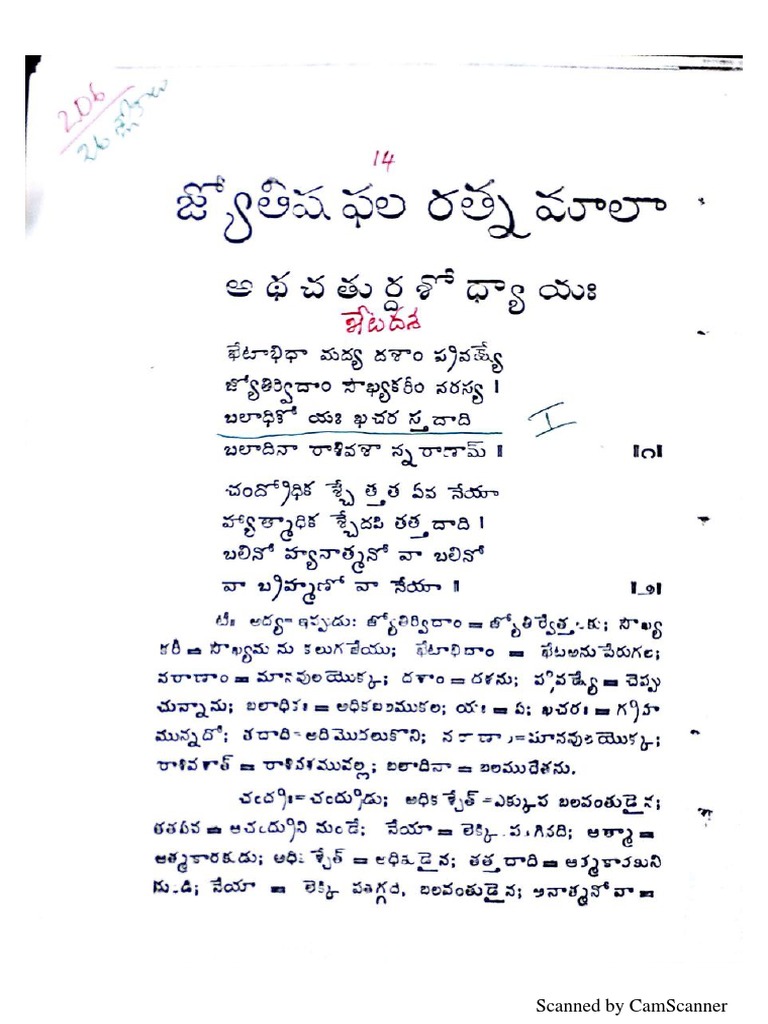 206
26 శ్లోకాలు
14
జ్యోతిష ఫల రత్న మాలా
అ థ చ తు ర్ద శో ధ్యా యః
ఖేటదశ
ఖేటాభిధా మద్య దశాం ప్రవక్ష్యే
జ్యోతిర్విదాం సౌఖ్యకరీం నరస్య |
బలాధికో యః ఖచర స్తదాది
I
బలాదినా రాశివశా న్నరాణామ్ ‖ ‖౧‖
చంద్రోధిక శ్చే త్తత ఏవ నేయా
హ్యాత్మాధిక శ్చేదపి తత్తదాది |
బలినో హ్యనాత్మనో వా బలినో
వా బ్రహ్మణో వా నేయా ‖ ‖౨‖
టీః అద్య=ఇప్పుడు: జ్యోతిర్విదాం = జ్యోతిర్వేత్తలకు; సౌఖ్య
కరీ = సౌఖ్యమును కలుగజేయు; ఖేటాభిదాం = ఖేటఅనుపేరుగల;
నరాణాం = మానవులయొక్క; దశాం = దశను; ప్రవక్ష్యే = చెప్పు
చున్నాను; బలాధికః = అధికబలముకల; యః = ఏ; ఖచరః = గ్రహ
మున్నదో; తదాది=అదిమొదలుకొని; నరాణాం=మానవులయొక్క;
రాశివశాత్ = రాశివశమువల్ల; బలాదినా = బలముచేతను.
చంద్రః=చంద్రుడు; అధికశ్చేత్=ఎక్కువ బలవంతుడైన;
తతఏవ = ఆచంద్రుని నుండే; నేయా = లెక్కి పదగినది; ఆత్మా =
ఆత్మకారకుడు; అధికశ్చేత్ = అధికుడైన; తత్తదాది = ఆత్మకారకుని
నుండి; నేయా = లెక్కి పతగ్గది, బలవంతుడైన; అనాత్మనోవా =
Scanned by CamScanner